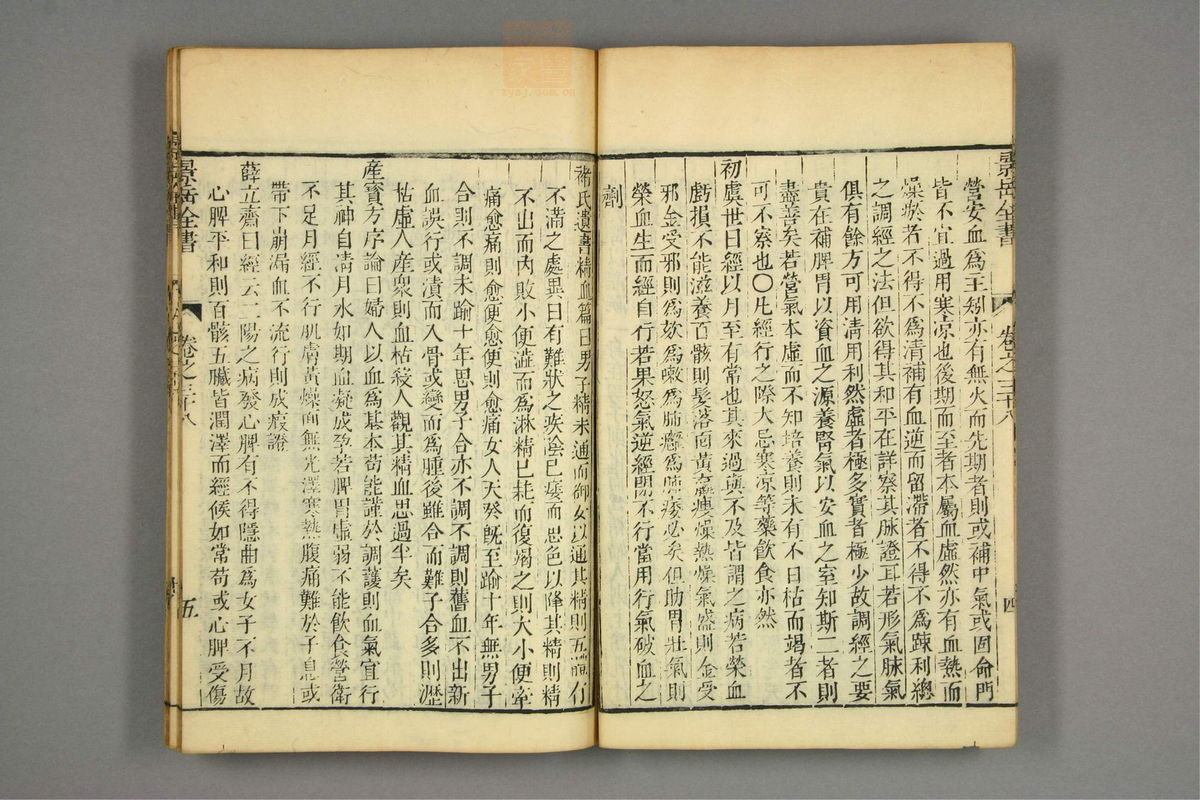 景岳全書
卷之三十八
四
營安血為主經亦有無火而先期者則或補中氣或固命門
皆不宜過用寒涼也後期而至者本屬血虛然亦有血熱而
燥瘀者不得不為清補有血逆而留滯者不得不為踈利總
之調經之法但欲得其和平在詳察其脉證耳若形氣脉氣
俱有餘方可用清用利然虛者極多實者極少故調經之要
貴在補脾胃以資血之源養腎氣以安血之室知斯二者則
盡善矣若營氣本虛而不知培養則未有不日枯而竭者不
可不察也○凡經行之際大忌寒涼等藥飲食亦然
初虞世曰經以月至有常也其來過與不及皆謂之病若榮血
虧損不能滋養百骸則髮落面黃羸瘦燥熱燥氣盛則金受
邪金受邪則為欬為嗽為肺癰為肺痿必矣但助胃壯氣則
榮血生而經自行若果怒氣逆經閉不行當用行氣破血之
劑
褚氏遺書精血篇曰男子精未通而御女以通其精則五體有
不滿之處異日有難狀之疾陰已痿而思色以降其精則精
不出而內敗小便澁而為淋精已耗而復竭之則大小便牽
痛愈痛則愈便愈便則愈痛女人天癸旣至踰十年無男子
合則不調未踰十年思男子合亦不調不調則舊血不出新
血誤行或漬而入骨或變而為腫後雖合而難子合多則瀝
枯虛人產衆則血枯殺人觀其精血思過半矣
產寶方序論曰婦人以血為基本苟能謹於調護則血氣宜行
其神自清月水如期血凝成孕若脾胃虛弱不能飲食營衛
不足月經不行肌膚黃燥面無光澤寒熱腹痛難於子息或
帶下崩漏血不流行則成瘕證
薛立齋曰經云二陽之病發心脾有不得隱曲為女子不月故
心脾平和則百骸五臟皆潤澤而經候如常苟或心脾受傷
景岳全書
卷之三十八
五
zysj.com.cn